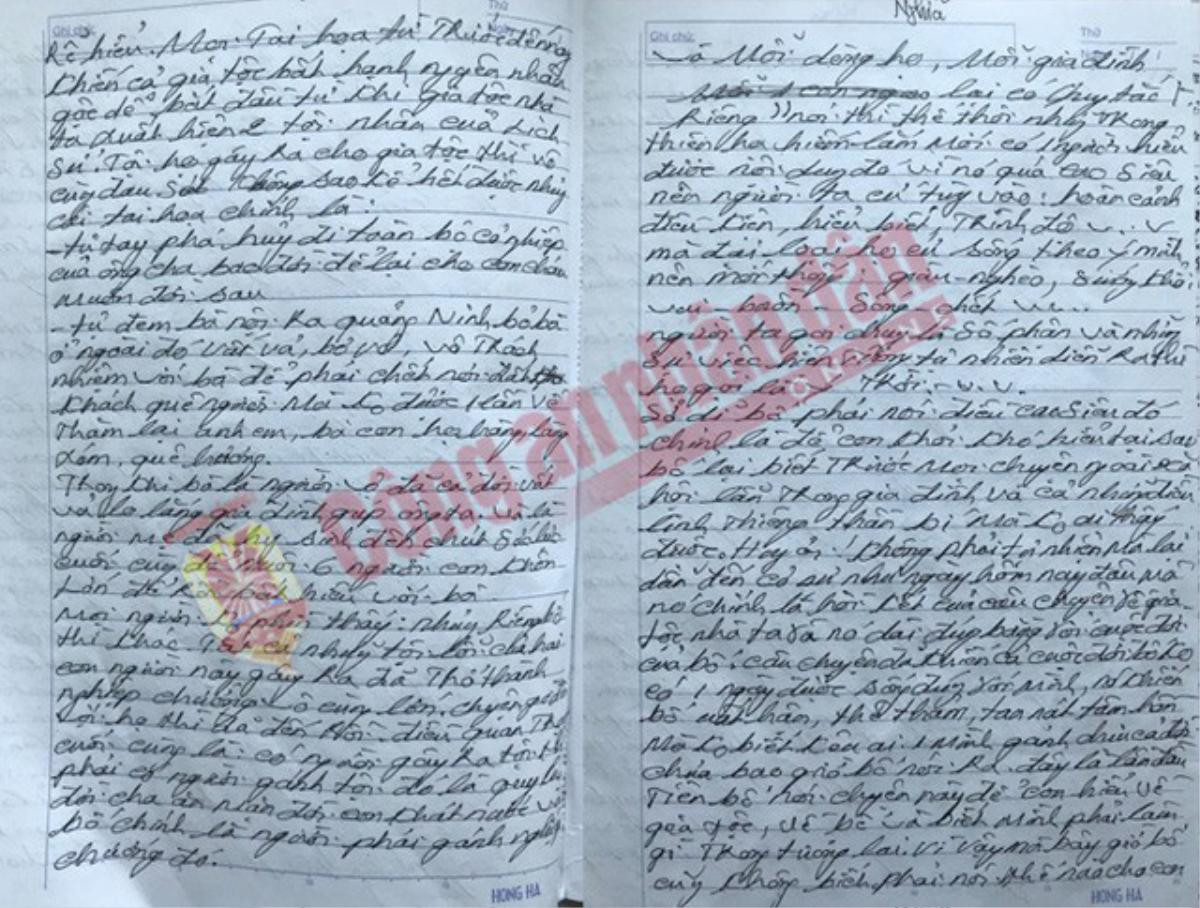 Ghi chú:
kể hiểu. Mọi Tai họa từ Trước đến nay
khiến cả gia tộc bất hạnh nguyên nhân
gốc dễ bắt đầu từ khi gia tộc nhà
ta xuất hiện 2 tội nhân của Lịch
Sử. Tội họ gây Ra cho gia tộc thì vô
cùng đau Sót không sao kể hết được nhưng
cái tai họa chính là:
- tự tay phá hủy đi toàn bộ cơ nghiệp
của ông cha bao đời để lại cho con cháu
muôn đời sau
- tự đem bà nội Ra quảng Ninh bỏ bà
ở ngoài đó vất vả, bơ vơ, vô Trách
nhiệm với bà để phải chết nơi đất
khách quê người Mà ko được 1 lần về
Thăm lại anh em, bà con họ hàng, làng
xóm, quê hương.
Trong khi bà là người vợ đã cả đời vất
vả lo lắng gia đình giúp ông ta. Và là
người mẹ đã hy sinh đến chút sức lực
cuối cùng để nuôi 6 người con khôn
lớn để rồi bất hiếu với bà.
Mọi người thấy: nhưng Riêng bố
thì khác. Tất cả những tội lỗi của hai
con người này gây Ra đã Trở thành
nghiệp chướng vô cùng lớn. chuyện
họ thì đã đến Rồi. điều quan Trọng
cuối cùng là: có người gây Ra tội thì
phải có người gánh tội đó là quy luật
đời cha ăn mặn đời con khát nước và
bố chính là người phải gánh nghiệp
chướng đó.
HONG HA
Nghĩa
Ghi chú:
Thứ
Và Mỗi dòng họ, Mỗi gia đình
Mỗi 1 con người lại có Quy tắc
Riêng" nói thì thế thôi nhưng Trong
thiên hạ hiếm lắm Mới có 1 người hiểu
được nội dung đó vì nó quá cao siêu
nên người ta cứ tùy vào: hoàn cảnh
điều kiện, hiểu biết, Trình độ v...v
mà đại loại họ cứ sống theo ý mình
nên mới thấy: giàu-nghèo, sướng khổ
vui - buồn, Sống chết v.v..
người ta gọi chung là số phận và những
sự việc hiện tượng tự nhiên diễn Ra thì
họ gọi là Trời.-v.v.
Sở dĩ bố phải nói điều cao siêu đó
chính là để con khỏi khó hiểu tại sao
bố lại biết Trước Mọi chuyện ngoài xã
hội lẫn Trong gia đình và cả những điều
linh thiêng thần bí Mà ko ai thấy
được. không phải tự nhiên Mà lại
dẫn đến có sự như ngày hôm nay đâu Mà
nó chính là hồi kết của câu chuyện về gia
tộc nhà ta và nó dài đúng bằng với cuộc đời
của bố. câu chuyện đã khiến cả cuộc đời bố ko
có 1 ngày được sống đúng với mình, nó khiến
bố uất hận, thê thảm, tan nát tâm hồn
Mà ko biết kêu ai. 1 Mình gánh chịu cả đời
chưa bao giờ bố nói Ra. đây là lần đầu
Tiên bố nói chuyện này để con hiểu về
gia tộc, về bố và biết Mình phải làm
gì Trong tương lai. Vì vậy mà bây giờ bố
cũng không biết phải nói thế nào cho con
HONG HA
Công an nhân dân
ONLINE